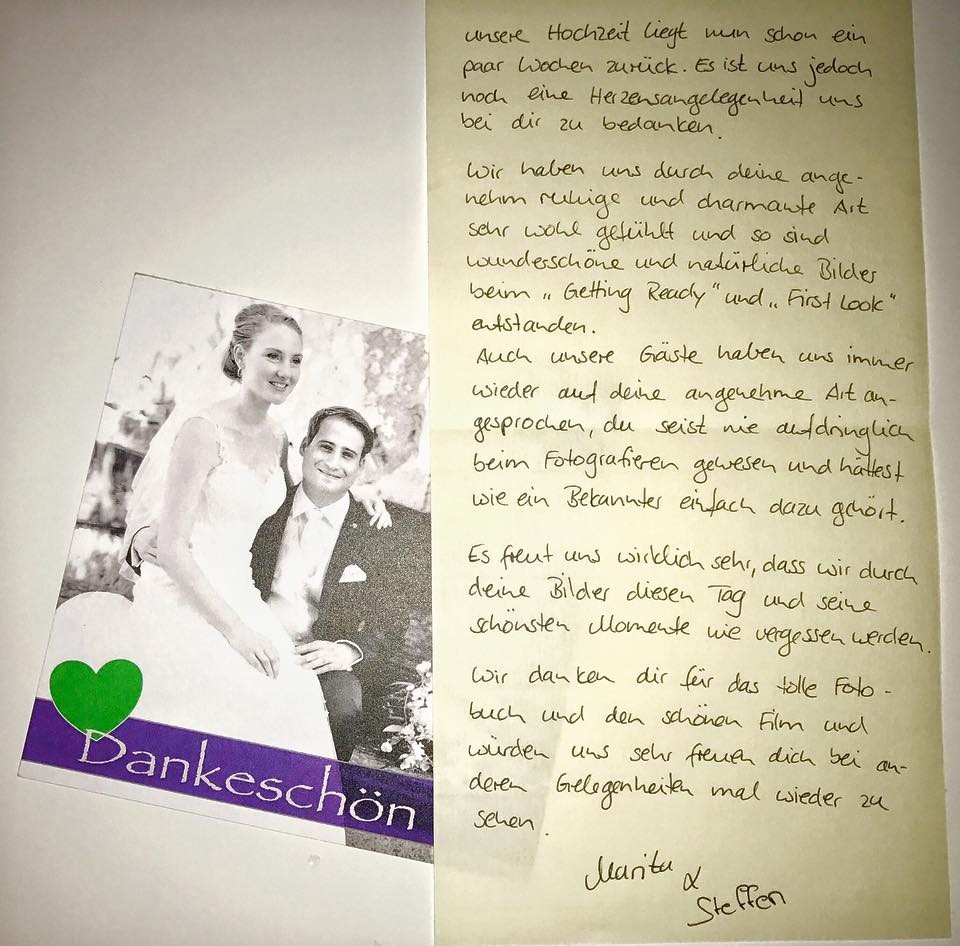 unsere Hochzeit liegt nun schon ein
paar Wochen zurück. Es ist uns jedoch
noch eine Herzensangelegenheit uns
bei dir zu bedanken.
Wir haben uns durch deine ange-
nehm ruhige und charmante Art
sehr wohl gefühlt und so sind
wunderschöne und natürliche Bilder
beim „Getting Ready" und „First Look"
entstanden.
Auch unsere Gäste haben uns immer
wieder auf deine angenehme Art an-
gesprochen, du seist nie aufdringlich
beim Fotografieren gewesen und hättest
wie ein Bekannter einfach dazu gehört.
Es freut uns wirklich sehr, dass wir durch
deine Bilder diesen Tag und seine
schönsten Momente nie vergessen werden.
Wir danken dir für das tolle Foto-
buch und den schönen Film und
würden uns sehr freuen dich bei an-
deren Gelegenheiten mal wieder zu
sehen.
Marita &
Steffen
Dankeschön